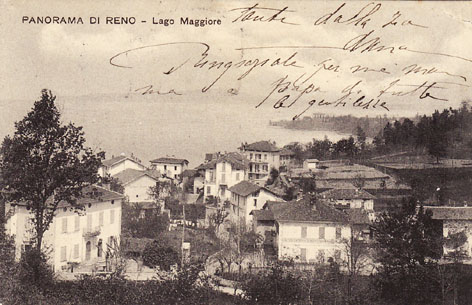 PANORAMA DI RENO - Lago Maggiore
tante dalla zia
Anna
Ringraziale per me mam
ma e papà di tutte
le gentilezze